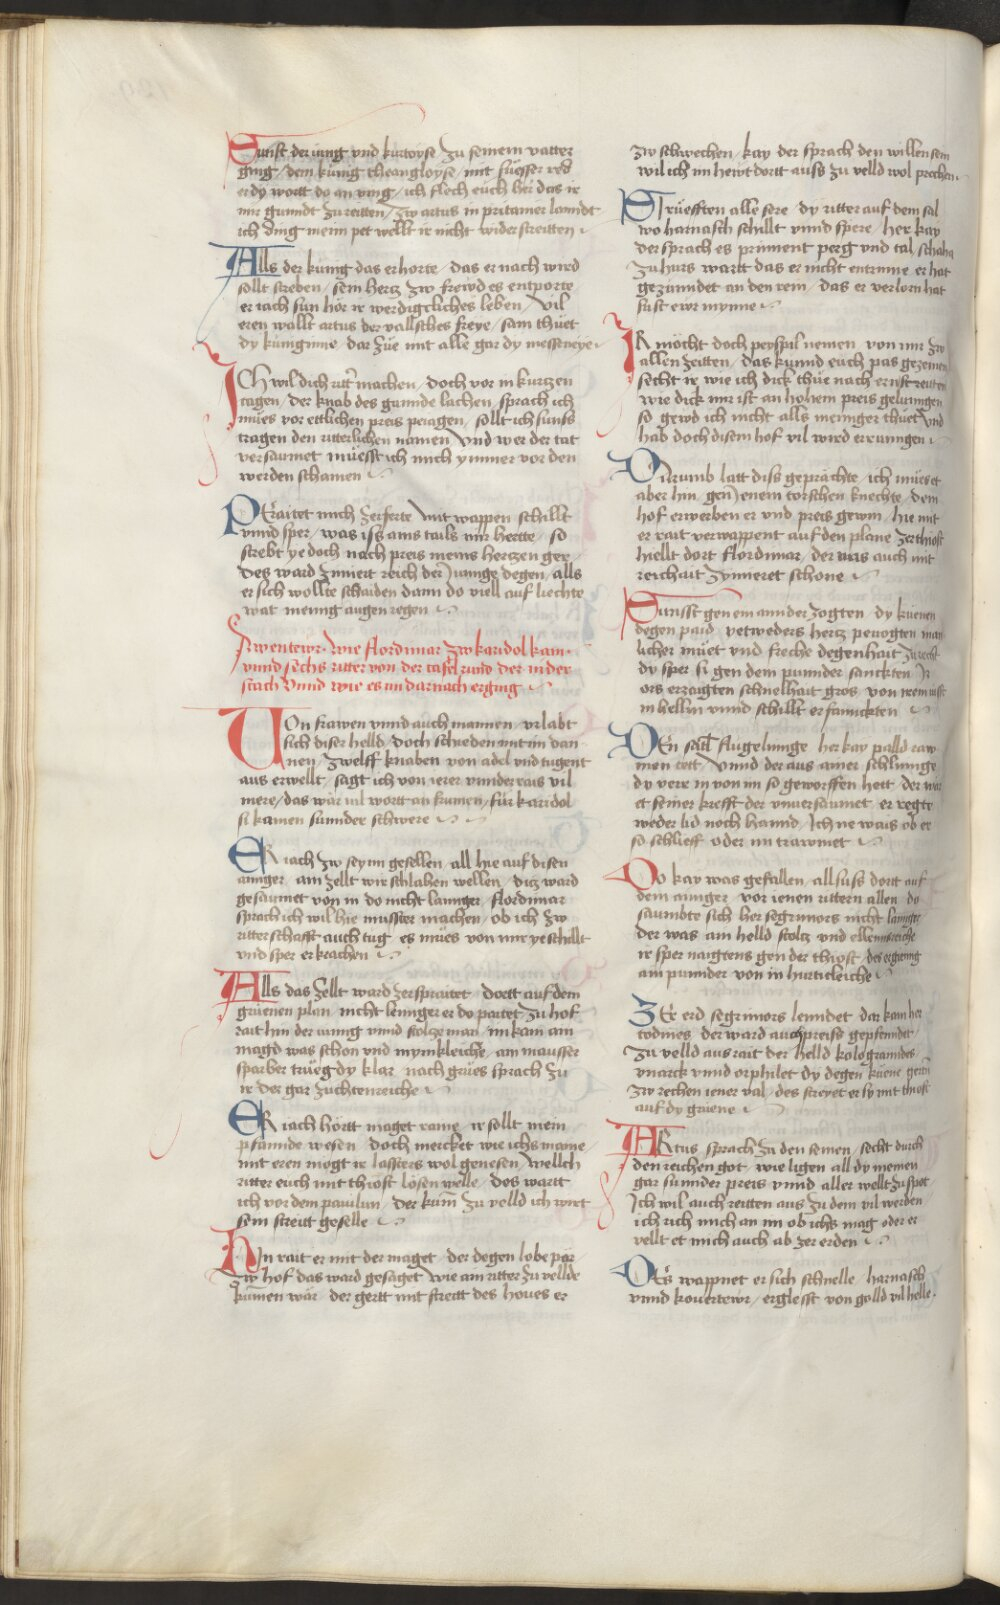 Sunst der iung vnd kurtoyse zu seinem vatter
ging / dem kunig theangloyse / mit suesser red
er dy wortt do an ving / ich flech euch her das ir
mir gunndt zu reitten / zw artus in pritanier lanndt
ich ding wenn pet wellt ir nicht widerstreitten
Alls der kunig das erhorte / das er nach wird
sollt streben / sein hertz zw frewd es entporte
er iach sun hör ir werdigcliches leben / vil
eren wallt artus der vallsches freye / sam thuet
dy kuniginne / dar zue mit alle gar dy messeneye
ICh wil dich ritter machen / doch vor in kurtzen
tagen / der knab des gunnde lachen / sprach ich
mues vor ettlichen preis peiagen / sollt ich sunss
tragen den ritterlichen namen / Vnd wer der tat
versaumet muesst ich mich ymmer vor den
werden schamen
PEraitet mich zerferte / mit wappen schillt
vnnd sper / was iss ains tails mir hertte / so
strebt ye doch nach preis meins hertzen ger
des ward zimiert reich der iunge degen / alls
er sich wollte schaiden dann do viell auf liechte
wat menig augen regen
Awentewr wie flordimar zw karidol kam
vnnd sechs ritter von der tafelrund der nider
stach Vnnd wie es im darnach erging
VOn frawen vnnd auch mannen / vrlabt
sich diser helld / doch schieden mit im dan
nen / Zwelff knaben von adel vnd tugent
aus erwellt / sagt ich von ierer wunder rais vil
mere / das wär vil wortt an frumen / für karidol
si kamen sunnder schwere
ER iach zw seynn gesellen / all hie auf disen
annger / ain zellt wir schlahen wellen / diz ward
gesaumet von in do nicht lannger / flordimar
sprach ich wil hie musster machen / ob ich zw
ritterschafft auch tug / es mues von mir ye schillt
vnd sper erkrachen
Alls das zellt ward zerspraitet / dortt auf dem
gruenen plan / nicht lennger er do paitet zu hof
rait hin der iunng vnnd stoltze man / im kam ain
magd was schon vnd mynnkleiche / ain mausser
sparber truegdy klar / nach grues sprach zu
ir der gar zuchtenreiche
ER iach hörtt maget raine / ir sollt mein
pfannde wesen / doch mercket wie ichs maine
mit eren mögt ir lassters wol genesen / wellch
ritter euch mit thiost lösen welle / des wartt
ich vor dem pauilun / der kum zu velld ich wirt
sein streitt geselle
HIn rait er mit der maget / der degen lobe par
Zw hof das ward gesaget wie ain ritter zu vellde
kumen wär / der gertt mit streitt des houes er
zw schwechen / kay der sprach den willen sein
wil ich im hewt dortt auss zu velld wol prechen
STruefften alle sere / dy ritter auf dem sal
wo harnasch schillt vnnd spere / her kay
der sprach es prinnent perg vnd tal / schaha
zu hurs wartt das er nicht entrinne er hat
gezunndet an den rein / das er verlorn hat
sust ewr mynne
IR möcht doch peyspil nemen / von mir zw
allen zeitten / das kunnd euch pas gezemen
secht ir wie ich dick thue nach ernst reitten
wie dick mir ist an hohem preis gelunngen
so gewd ich nicht alls meniger thuet / vnd
hab doch disem hof vil wird errunngen
DArumb latt diss geprächte / ich mues et
aber hin / gen ienem torschen knechte / dem
hof erwerben er vnd preis gewin / hie mit
er rait verwappent auf den plane / zer thiost
hiellt dort flordimar / der was auch mit
reichait zymieret schone
Sunsst gen ein annder zogten / dy kuenen
degen paid / yetweders hertz pewogten man
licher muet vnd freche degenhait / zu recht
dy sper si gen dem punnder sanckten / Ir
ors erzaigten schnelhait gros / von in
in hellm vnnd schillt erfannckten
DEn satl flugelinnge / her kay palld raw
men tett / Vnnd der aus ainer schlinnge
dy verr in von im so geworffen hett / der wär
et seiner krefft der vnuersaumet / er regte
weder lid noch hannd / Ich ne wais ob er
so schlieff oder im trawmet
Do kay was gefallen / allsuss dortt auf
dem annger / vor ienen rittern allen / do
saumbte sich her segrimors nicht lannger
der was ain helld stoltz vnd ellennsreiche
ir sper naigtens gen der thiost / des erginng
ain punnder von in hurticleiche
ZEr erd segrimors lenndet / dar kam her
todines / der ward auch preiss gepfenndet
zu velld aus rait der helld kologrannde
vnarck vnnd orphilet dy degen kuene gern
zw rechen iener val / des strewet er sy mit thiost
auf dy gruene
ARtus sprach zu den seinen / secht durch
den reichen got / wie ligen all dy meinen
gar sunnder preis vnnd aller wellt zu spot
Ich wil auch reitten aus zu dem vil werden
ich rich mich an im ob ichs mag oder er
vellt et mich auch ab zer erden
DEs wappnet er sich schnelle / harnasch
vnnd kouertewr / erglesst von golld vil helle